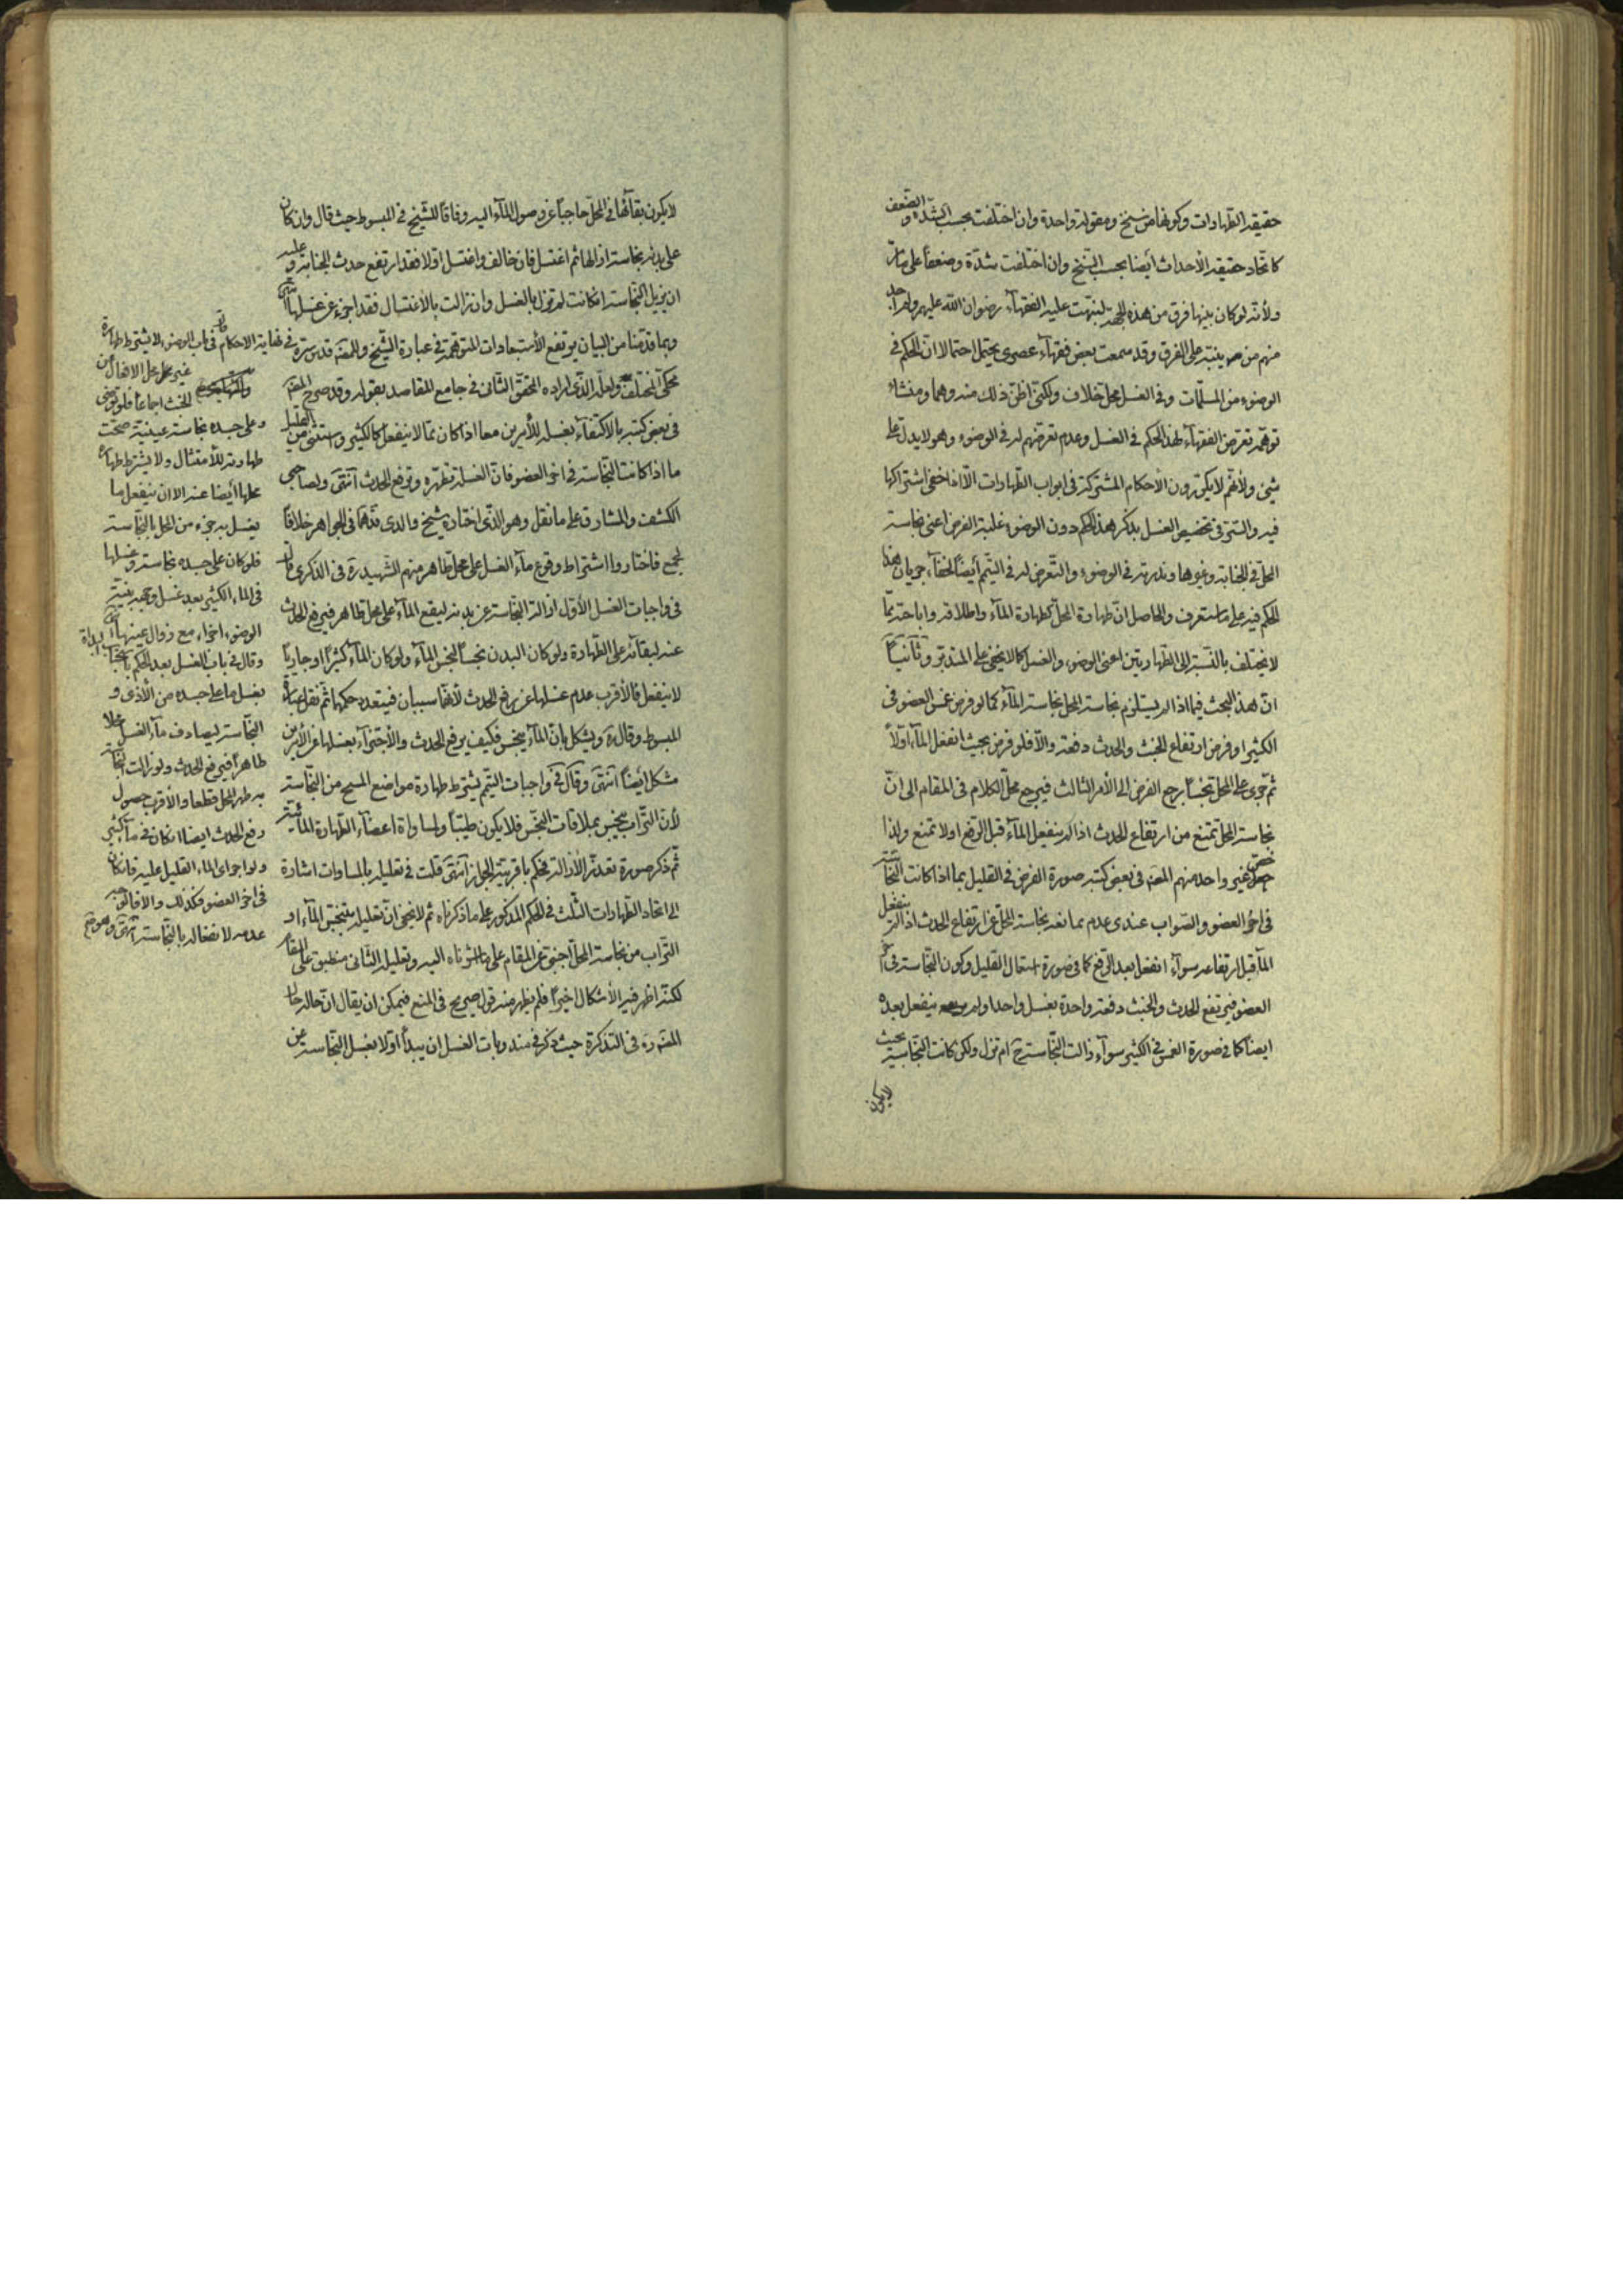 حقيقة الطهارات وكونها من سنخ ومقولة واحدة وان اختلفت بحسب الشدة والضعف
كاتحاد حقيقة الأحداث أيضا بحسب السنخ وان اختلفت شدة وضعفاً على ما مرّ
ولأنه لو كان بينها فرق من هذه الجهة لنبهت عليه الفقهاء رضوان الله عليهم ولم أجد
منهم من ينبه على الفرق وقد سمعت بعض فقهاء عصرى يحتمل احتمالا ان الحكم في
الوضوء من المسلمات وفي الغسل محل خلاف ولكنى اظن ذلك منه وهما ومنشاء
توهمه تعرض الفقهاء لهذا الحكم في الغسل وعدم تعرضهم له في الوضوء وهو لا يدل على
شئ ولأنهم لا يكررون الأحكام المشتركة في ابواب الطهارات الا اذا خفى اشتراكها
فيه والسّر في تخصيص الغسل بذكر هذا الحكم دون الوضوء غلبة الفرض اعنى نجاسة
المحل في الجنابة وغيرها وندرته في الوضوء والتعرض له في التيمم أيضاً لخفاء جريان هذا
الحكم فيه على ما ستعرف والحاصل انّ طهارة المحل كطهارة الماء واطلاقه واباحته ممّا
لا يختلف بالنسبة الى الطهارتين اعنى الوضوء والغسل كما لا يخفى على المتدبر وثانياً
انّ هذا البحث فيما اذا لم يستلزم نجاسة المحل نجاسة الماء كما لو فرض غمس العضو في
الكثير او فرض ارتفاع الخبث والحدث دفعة والّا فلو فرض بحيث انفعل الماء اولاً
ثمّ جرى على المحل نجساً يرجع الفرض الى الأمر الثالث فيرجع محلّ الكلام في المقام الى انّ
نجاسة المحل تمنع من ارتفاع الحدث اذا لم ينفعل الماء قبل الرفع او لا تمنع ولذا
خصّ غير واحد منهم المصنف في بعض كتبه صورة الفرض في القليل بما اذا كانت النجاسة
في اخر العضو والصواب عندى عدم ممانعة نجاسة المحل عن ارتفاع الحدث اذا لم ينفعل
الماء قبل ارتفاعه سواء انفعل بعد الرفع كما في صورة استعمال القليل وكون النجاسة في اخر
العضو فيرتفع الحدث والخبث دفعة واحدة بغسل واحد او لم ينفعل بعده
ايضا كما في صورة الغمس في الكثير سواء زالت النجاسة ح ام لم تزل ولكن كانت النجاسة بحيث
لا يكون
لا يكون بقائها في المحل حاجباً عن وصول الماء اليه وفاقاً للشيخ في المبسوط حيث قال وان كان
على بدنه نجاسة ازالها ثم اغتسل فان خالف واغتسل اولا فقد ارتفع حدث الجنابة وعليه
ان يزيل النجاسة ان كانت لم تزل بالغسل وان زالت بالاغتسال فقد اجزء عن غسلها انتهى
وبما قدمنا من البيان يرتفع الأستبعادات المتوهمة في عبارة الشيخ والمصنف قدس سره في
محكى المختلف ولعله الذى اراده المحقق الثانى في جامع المقاصد بقوله وقد صرح المصنف
في بعض كتبه بالاكتفاء بغسلة للأمرين معا اذا كان مما لا ينفعل كالكثير واستثنى من القليل
ما اذا كانت النجاسة في اخر العضو فانّ الغسلة تطهره وترفع الحدث انتهى ولصاحبى
الكشف والمشارق على ما نقل وهو الذى اختاره شيخ والدى قدهما في الجواهر خلافاً
لجمع فاختاروا اشتراط وقوع ماء الغسل على محل طاهر منهم الشهيد ره في الذكرى قال
في واجبات الغسل الأول ازالة النجاسة عن بدنه ليقع الماء على محل طاهر فيرفع الحدث
عنه لبقائه على الطهارة ولو كان البدن نجساً لنجس الماء ولو كان الماء كثيراً او جارياً
لا ينفعل فالأقرب عدم غسلها عن رفع الحدث لأنهما سببان فيتعدد حكمهما ثم نقل عبارة
المبسوط وقال ره ويشكل بانّ الماء ينجس فكيف يرفع الحدث والأجتزاء بغسلها عن الأمرين
مشكل أيضاً انتهى وقال في واجبات التيمم يشترط طهارة مواضع المسح من النجاسة
لأنّ التراب ينجس بملاقات النجس فلا يكون طيباً ولمساواة اعضاء الطهارة المائية
ثمّ ذكر صورة تعذّر الأزالة فحكم باقربية الجواز انتهى قلت في تعليله بالمساوات اشارة
الى اتحاد الطهارات الثلث في الحكم المذكور على ما ذكرناه ثم لا يخفى انّ تعليله بتنجيس الماء او
التراب من نجاسة المحل اجنبى عن المقام على ما اشرناه اليه وتعليله الثانى منطبق على المقام
لكنه اظهر فيه الأشكال اخيراً فلم يظهر منه قول صريح في المنع فيمكن ان يقال انّ حاله حال
المصنف ره في التذكرة حيث ذكر في مندوبات الغسل ان يبدأ اولا بغسل النجاسة عن
نهاية الاحكام في باب الوضوء لا يشترط طهارة
غير محل الافعال من
الخبث اجماعاً فلو توضى
وعلى جسده نجاسة عينية صحت
طهارته للأمتثال ولا يشترط طهارة
محلها أيضا عنه الا ان ينفعل ما
يغسل به جزء من المحل بالنجاسة
فلو كان على جسده نجاسة وغسلها
في الماء الكثير بعد غسل وجهه بنية
الوضوء اجزاء مع زوال عينها انتهى
وقال في باب الغسل بعد الحكم باستحباب البدأة
بغسل ما على جسده من الأذى و
النجاسة ليصادف ماء الغسل محلا
طاهراً فيرفع الحدث ولو زالت النجاسة
به طهر المحل قطعا والأقرب حصول
رفع الحدث ايضا ان كان في ماء كثير
ولو اجرى الماء القليل عليه فان كان
في اخر العضو فكذلك والا فالوجه
عدمه لانفعاله بالنجاسة انتهى وهو صريح